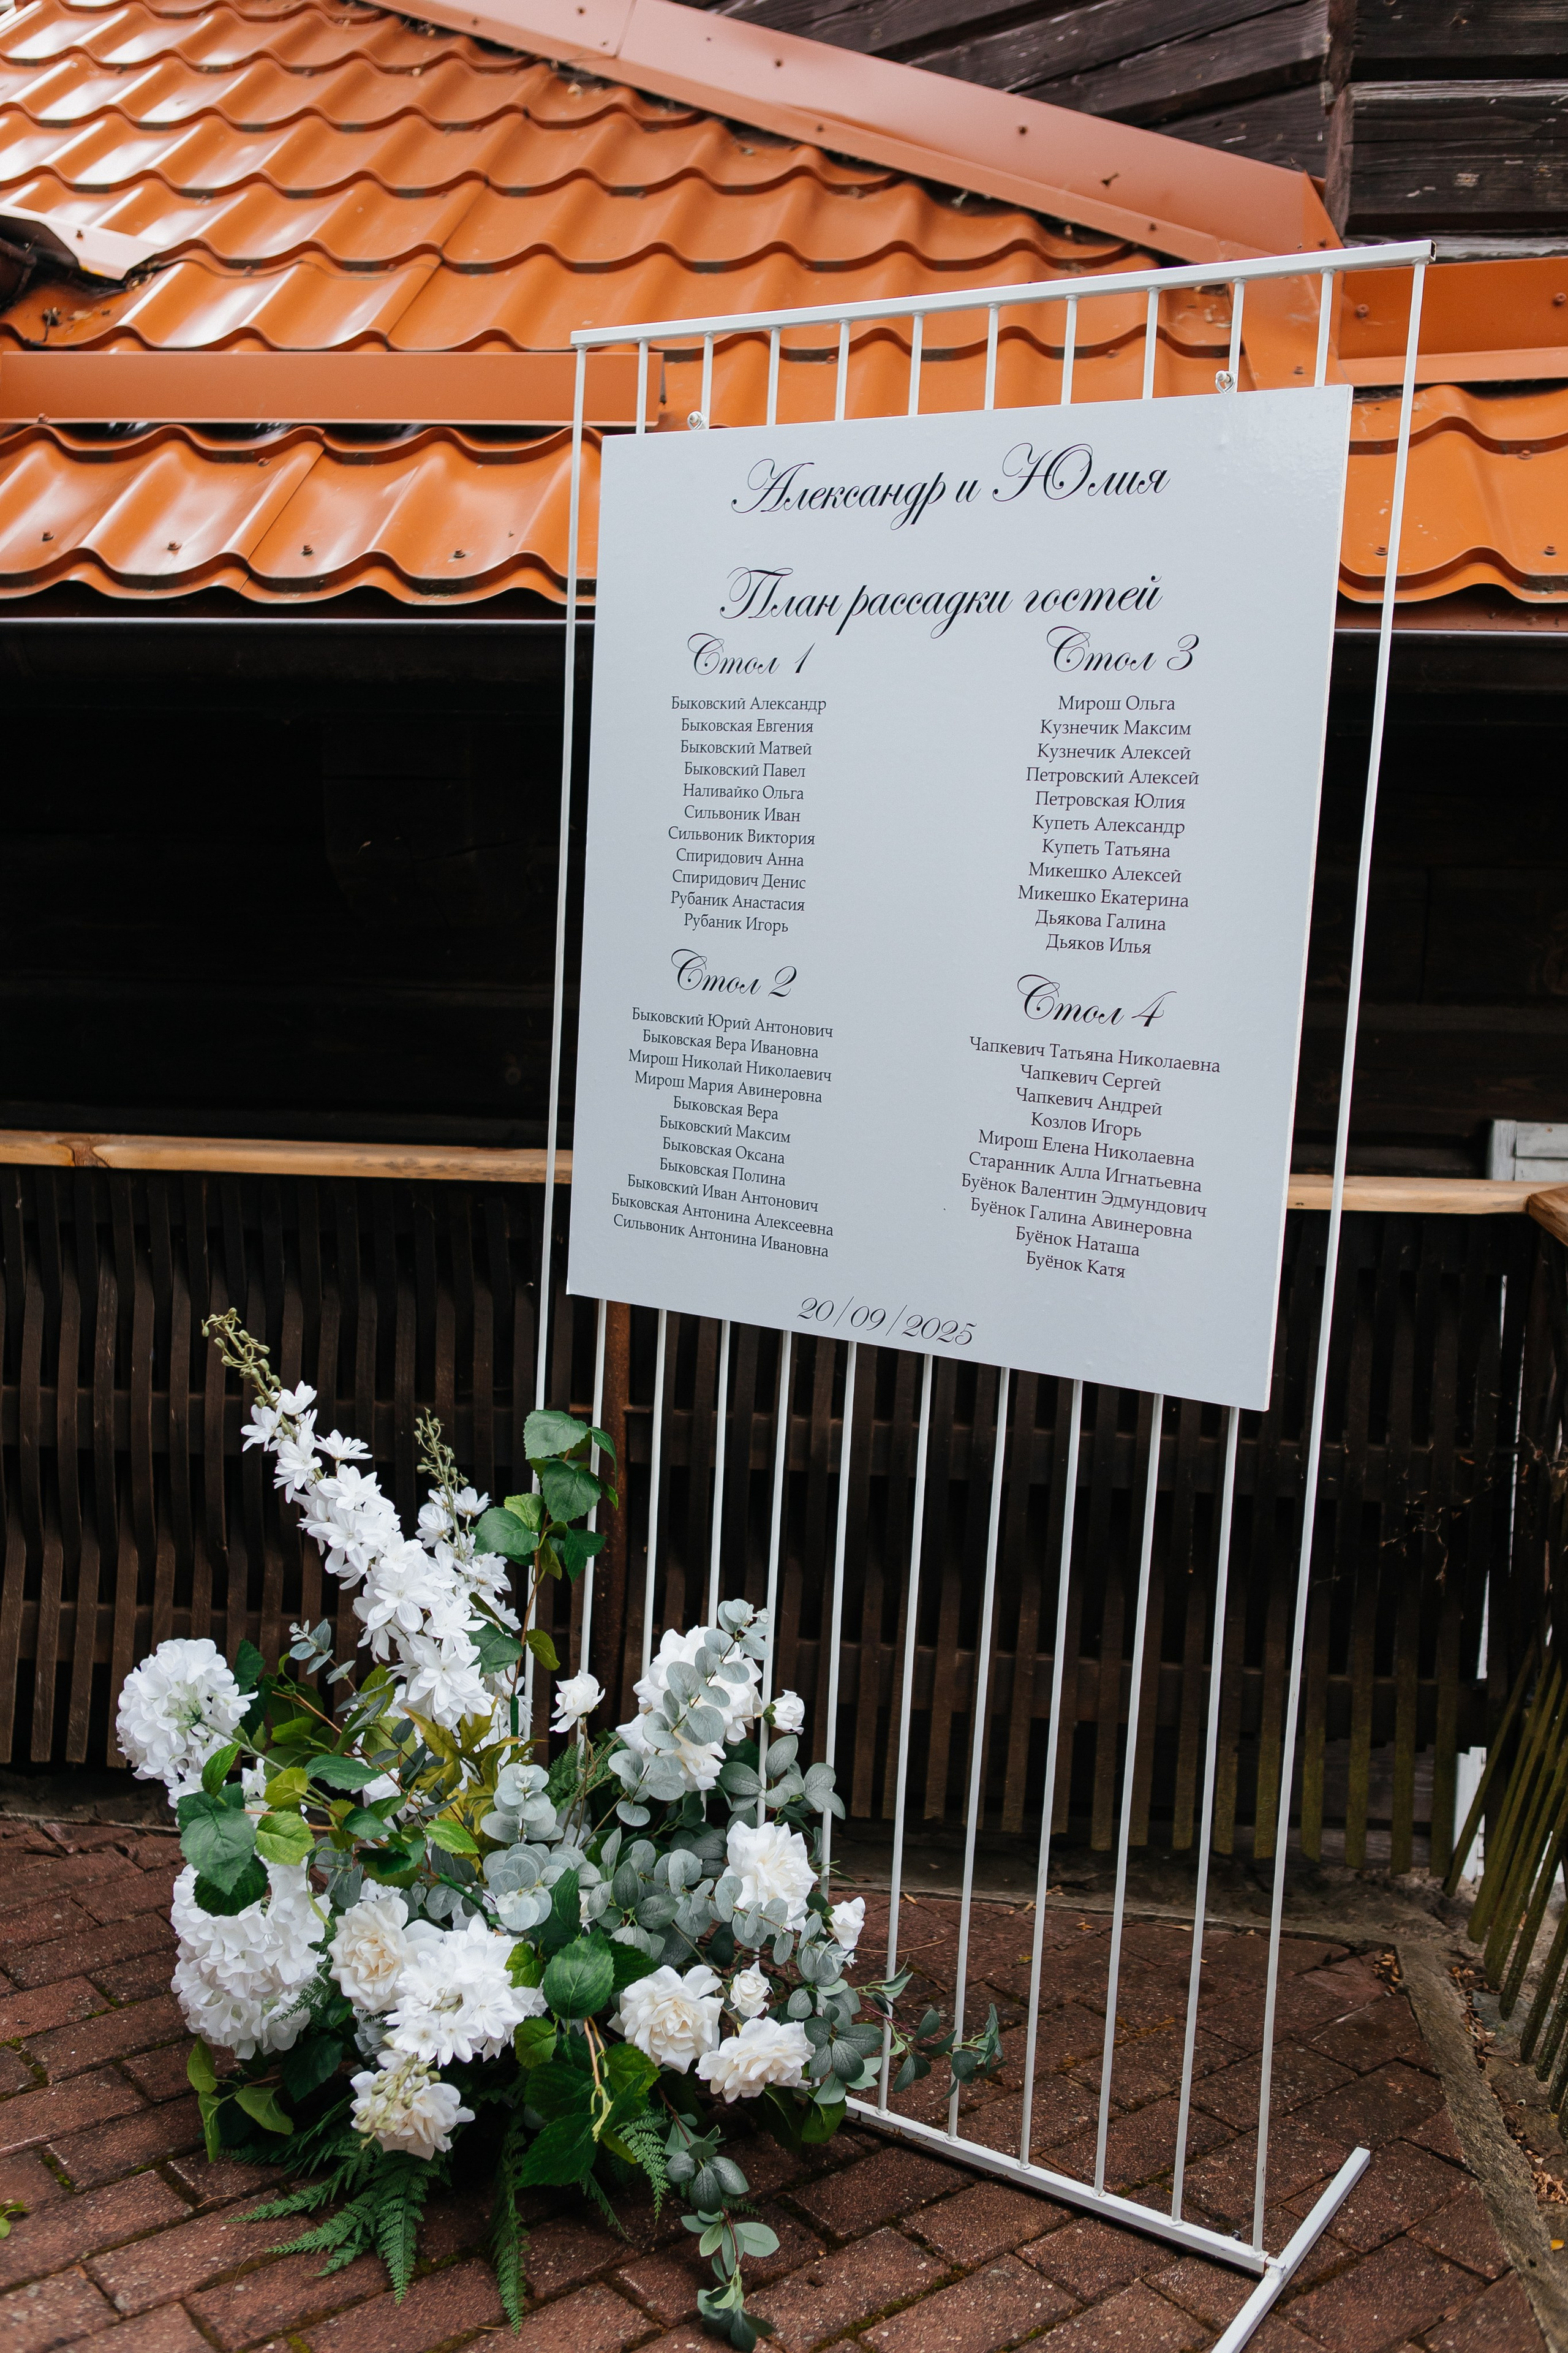 Александр и Юлия
План рассадки гостей
Стол 1
Быковский Александр
Быковская Евгения
Быковский Матвей
Быковский Павел
Наливайко Ольга
Сильвоник Иван
Сильвоник Виктория
Спиридович Анна
Спиридович Денис
Рубаник Анастасия
Рубаник Игорь
Стол 2
Быковский Юрий Антонович
Быковская Вера Ивановна
Мирош Николай Николаевич
Мирош Мария Авинеровна
Быковская Вера
Быковский Максим
Быковская Оксана
Быковская Полина
Быковский Иван Антонович
Быковская Антонина Алексеевна
Сильвоник Антонина Ивановна
Стол 3
Мирош Ольга
Кузнечик Максим
Кузнечик Алексей
Петровский Алексей
Петровская Юлия
Купеть Александр
Купеть Татьяна
Микешко Алексей
Микешко Екатерина
Дьякова Галина
Дьяков Илья
Стол 4
Чапкевич Татьяна Николаевна
Чапкевич Сергей
Чапкевич Андрей
Козлов Игорь
Мирош Елена Николаевна
Старанник Алла Игнатьевна
Буёнок Валентин Эдмундович
Буёнок Галина Авинеровна
Буёнок Наташа
Буёнок Катя
20/09/2025